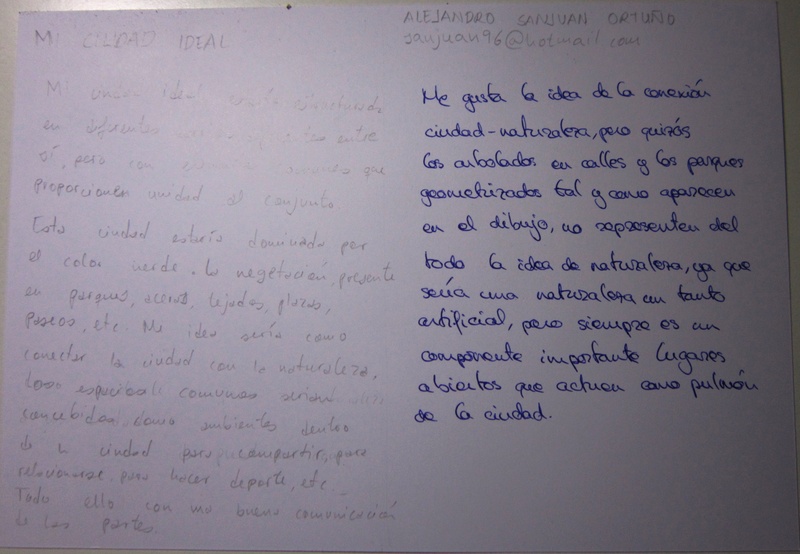 MI CIUDAD IDEAL
Mi ciudad ideal estaría estructurada
en diferentes entre
sí, pero con que
proporcionen unidad al conjunto.
Esta ciudad estaría dominada por
el color verde. La vegetación, presente
en parques, aceras, tejados, plazas,
paseos, etc. Mi idea sería como
conectar la ciudad con la naturaleza.
comunes serían
ambientes dentro
de la ciudad para compartir, para
relacionarse, para hacer deporte, etc.
Todo ello con una buena comunicación
de las partes.
ALEJANDRO SANJUAN ORTUÑO
sanjuan96@hotmail.com
Me gusta la idea de la conexión
ciudad-naturaleza, pero quizás
los arbolados en calles y los parques
geometrizados tal y como aparecen
en el dibujo, no representen del
todo la idea de naturaleza, ya que
sería una naturaleza un tanto
artificial, pero siempre es un
componente importante lugares
abiertos que actuen como pulmón
de la ciudad.